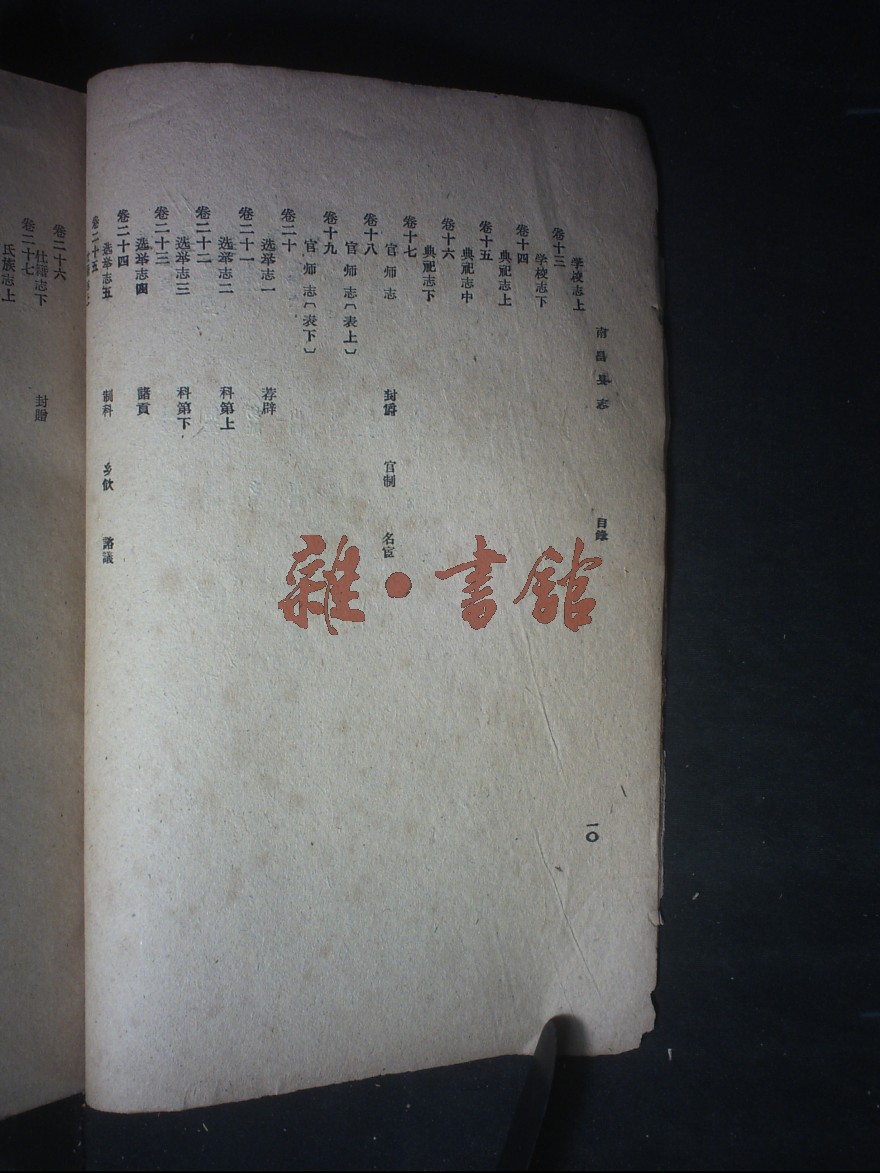 南昌县志 目錄 一〇
学校志上
卷十三
学校志下
卷十四
典祀志上
卷十五
典祀志中
卷十六
典祀志下
卷十七
官师志 封爵 官制 名宦
卷十八
官师志〔表上〕
卷十九
官师志〔表下〕
卷二十
选举志一 荐辟
卷二十一
选举志二 科第上
卷二十二
选举志三 科第下
卷二十三
选举志四 諸貢
卷二十四
选举志五 制科 乡飲 諮議
卷二十五
卷二十六
仕籍志下 封贈
卷二十七
氏族志上
雜·書館